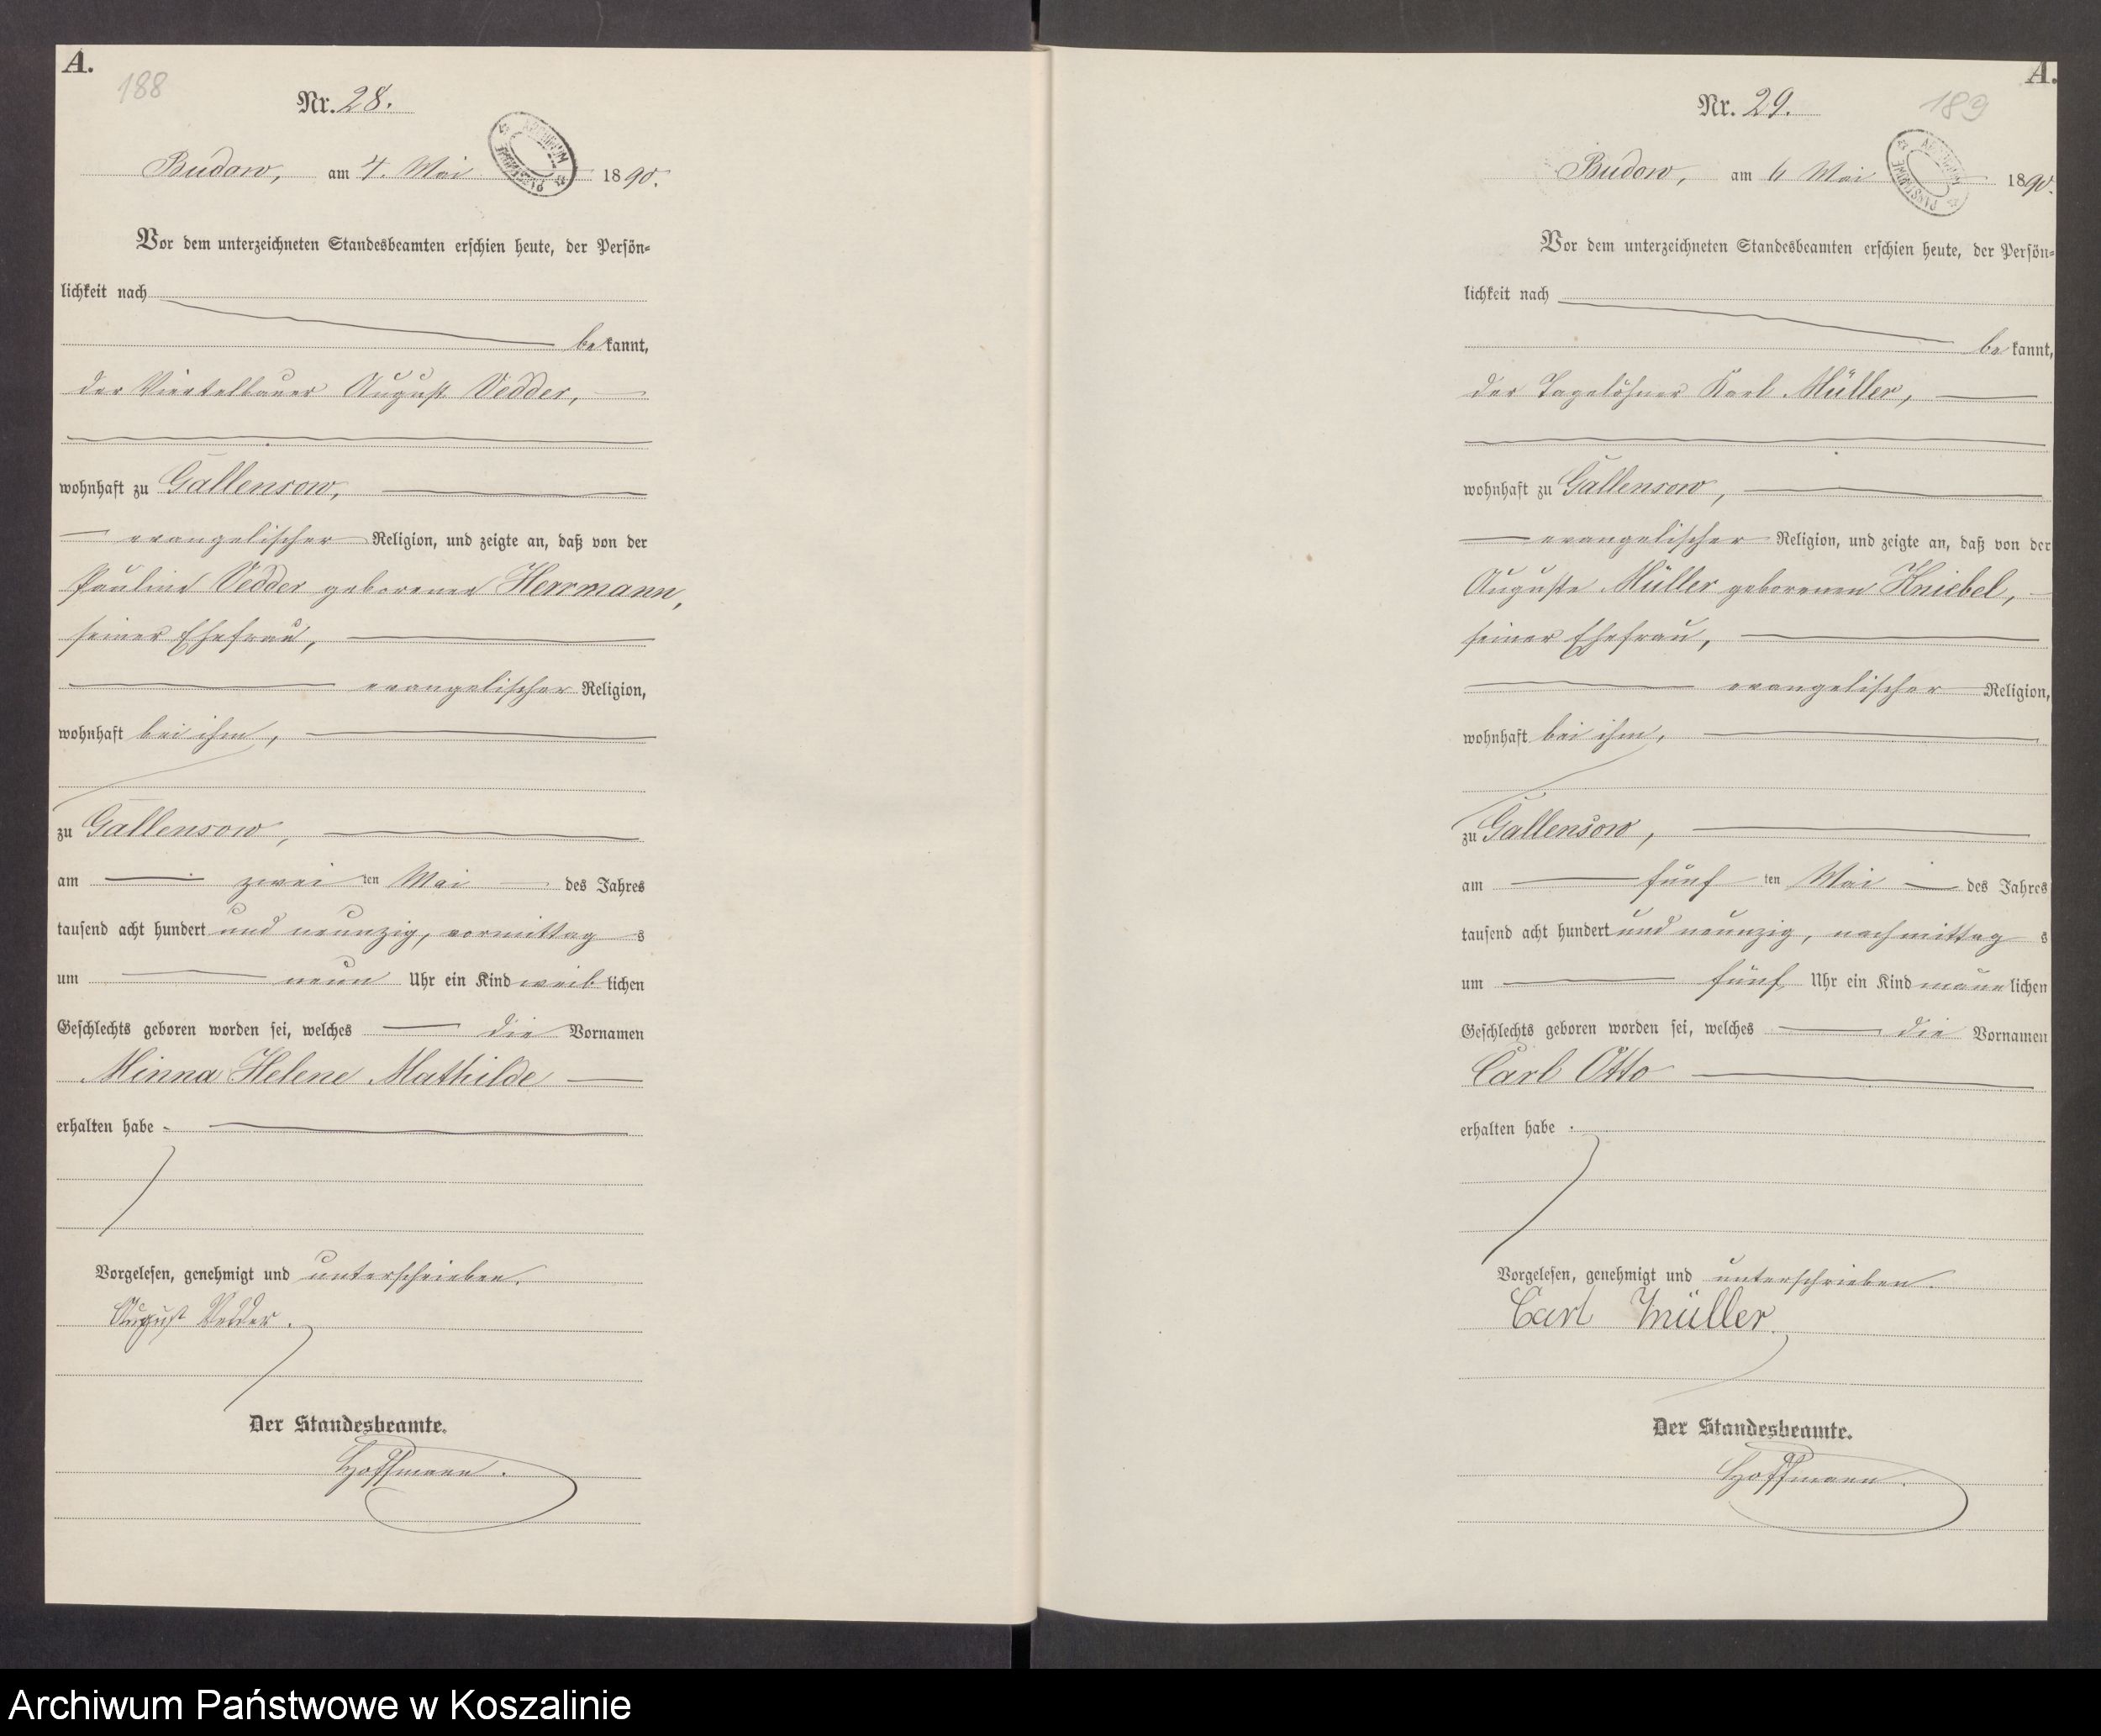 A.
188
Nr. 28.
Budow, am 4. Mai 1890.
Vor dem unterzeichneten Standesbeamten erschien heute, der Persön-
lichkeit nach
be kannt,
der Viertelbauer August Vedder,
wohnhaft zu Gallensow,
evangelischer Religion, und zeigte an, daß von der
Pauline Vedder geborenen Herrmann,
seiner Ehefrau,
evangelischer Religion,
wohnhaft bei ihm,
zu Gallensow,
am zwei ten Mai des Jahres
tausend acht hundert und neunzig, vormittag s
um neun Uhr ein Kind weib lichen
Geschlechts geboren worden sei, welches die Vornamen
Minna Helene Mathilde
erhalten habe.
Vorgelesen, genehmigt und unterschrieben.
August Vedder.
Der Standesbeamte.
Hoffmann.
A.
189
Nr. 29.
Budow, am 6 Mai 1890.
Vor dem unterzeichneten Standesbeamten erschien heute, der Persön-
lichkeit nach
be kannt,
der Tagelöhner Karl Müller,
wohnhaft zu Gallensow,
evangelischer Religion, und zeigte an, daß von der
Auguste Müller geborenen Kniebel,
seiner Ehefrau,
evangelischer Religion,
wohnhaft bei ihm,
zu Gallensow,
am fünf ten Mai des Jahres
tausend acht hundert und neunzig, nachmittag s
um fünf Uhr ein Kind männ lichen
Geschlechts geboren worden sei, welches die Vornamen
Carl Otto
erhalten habe.
Vorgelesen, genehmigt und unterschrieben.
Carl Müller
Der Standesbeamte.
Hoffmann.
Archiwum Państwowe w Koszalinie